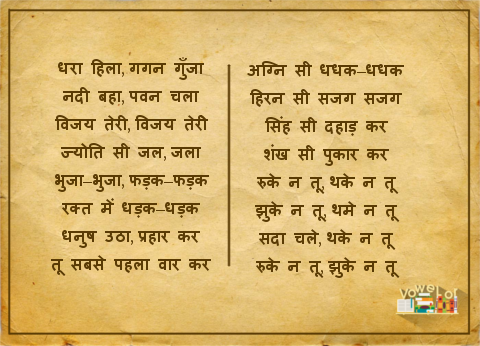 धरा हिला, गगन गुँजा
नदी बहा, पवन चला
विजय तेरी, विजय तेरी
ज्योति सी जल, जला
भुजा–भुजा, फड़क–फड़क
रक्त में धड़क–धड़क
धनुष उठा, प्रहार कर
तू सबसे पहला वार कर
अग्नि सी धधक–धधक
हिरन सी सजग सजग
सिंह सी दहाड़ कर
शंख सी पुकार कर
रुके न तू, थके न तू
झुके न तू, थमे न तू
सदा चले, थके न तू
रुके न तू, झुके न तू